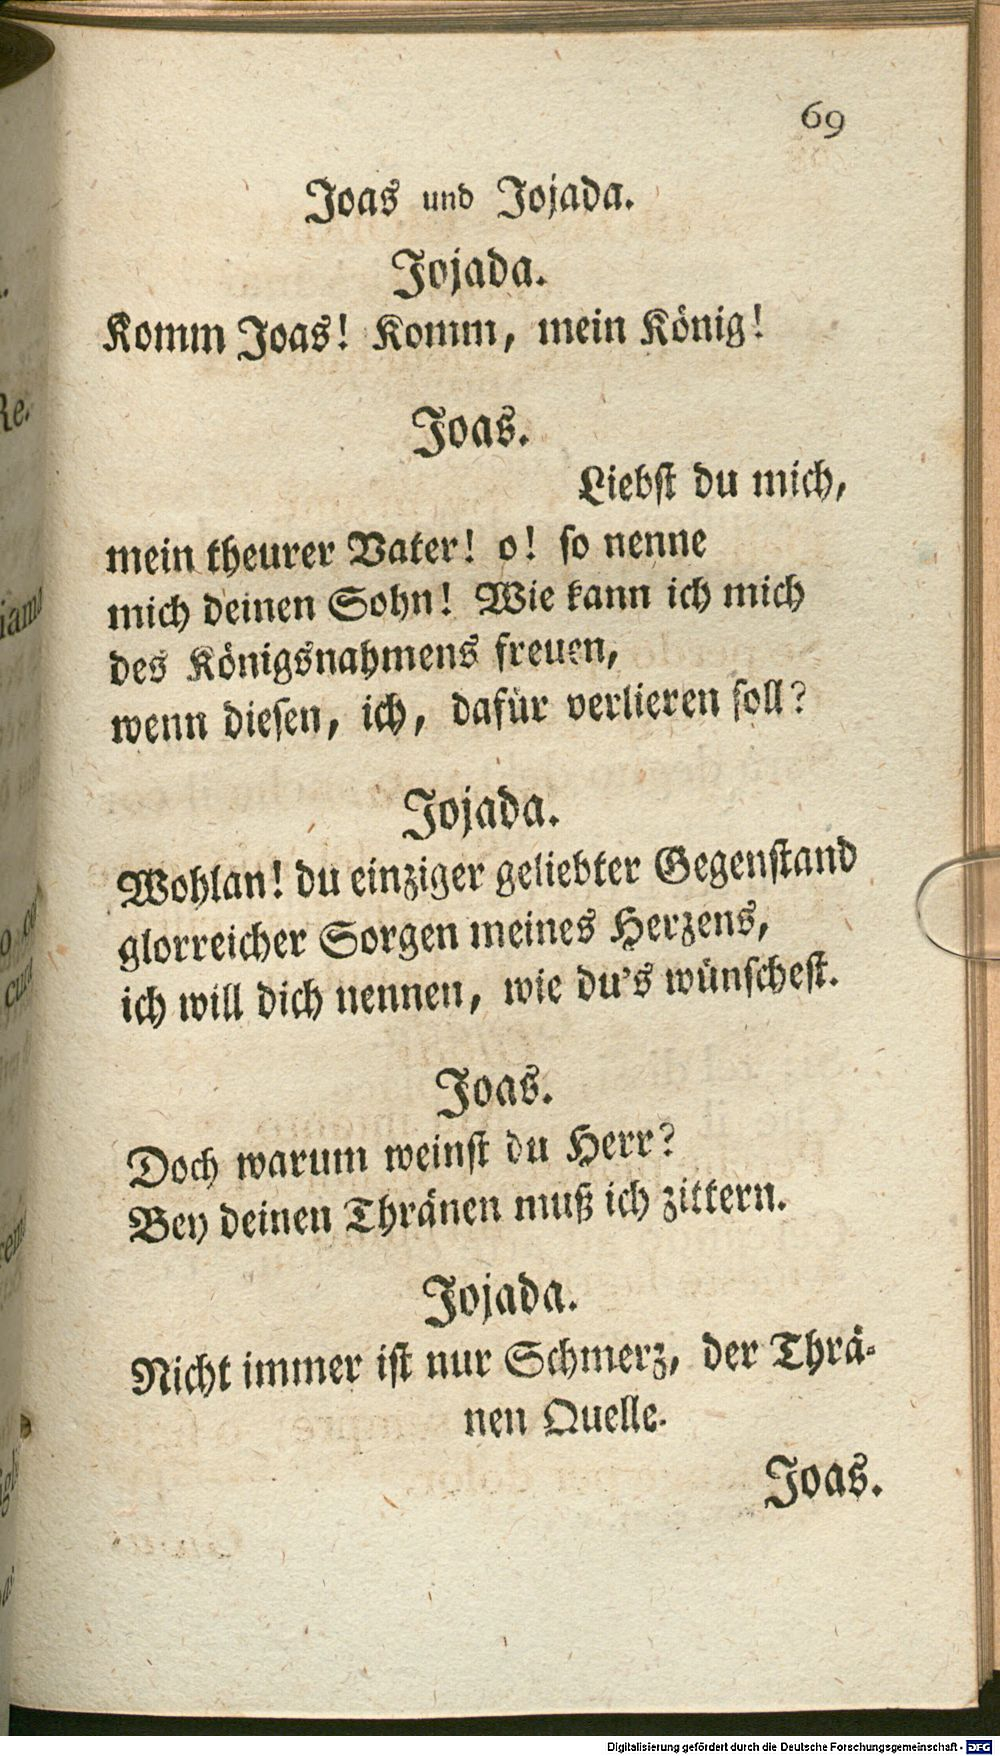 69
Joas und Jojada.
Jojada.
Komm Joas! Komm, mein König!
Joas.
Liebſt du mich,
mein theurer Vater! o! ſo nenne
mich deinen Sohn! Wie kann ich mich
des Königsnahmens freuen,
wenn dieſen, ich, dafür verlieren ſoll?
Jojada.
Wohlan! du einziger geliebter Gegenſtand
glorreicher Sorgen meines Herzens,
ich will dich nennen, wie du's wünſcheſt.
Joas.
Doch warum weinſt du Herr?
Bey deinen Thränen muß ich zittern.
Jojada.
Nicht immer iſt nur Schmerz, der Thrä-
nen Quelle.
Joas.
Digitalisierung gefördert durch die Deutsche Forschungsgemeinschaft - DFG